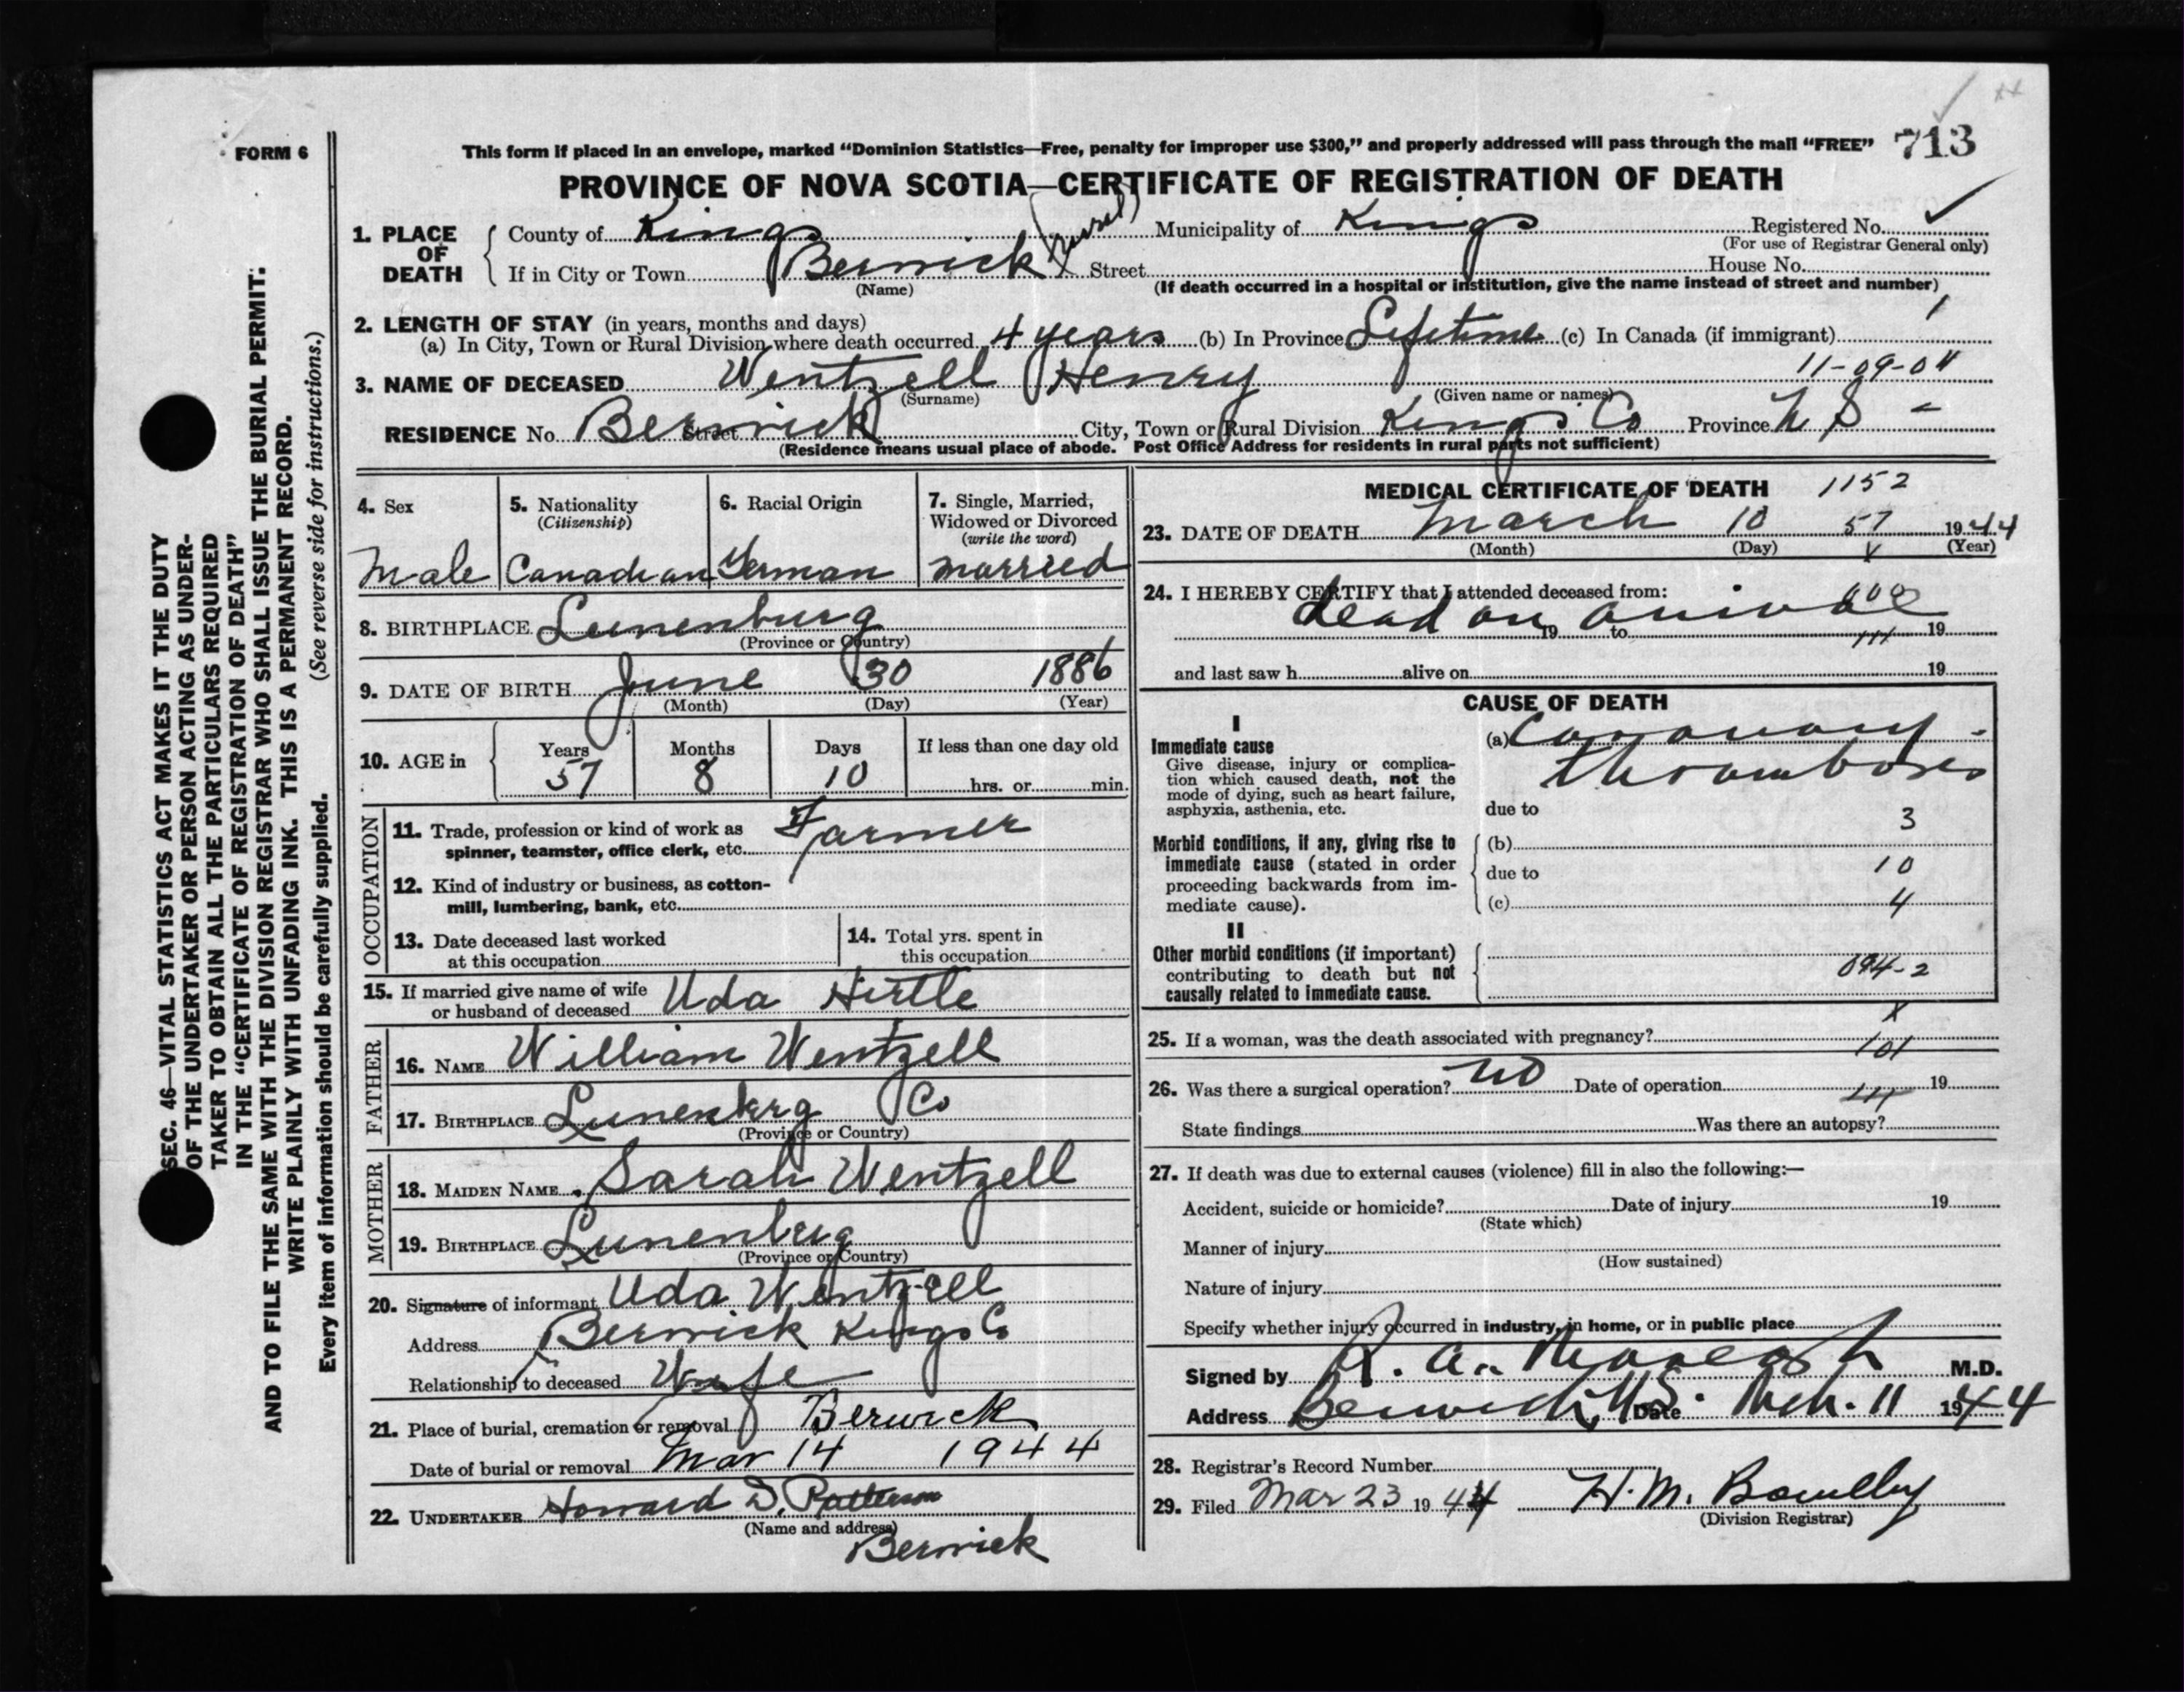 FORM 6
This form if placed in an envelope, marked “Dominion Statistics—Free, penalty for improper use $300,” and properly addressed will pass through the mail “FREE” 713
PROVINCE OF NOVA SCOTIA—CERTIFICATE OF REGISTRATION OF DEATH
1. PLACE OF DEATH
County of Kings Municipality of Kings Registered No.
(For use of Registrar General only)
If in City or Town Berwick (rural) Street House No.
(Name) (If death occurred in a hospital or institution, give the name instead of street and number)
2. LENGTH OF STAY (in years, months and days)
(a) In City, Town or Rural Division where death occurred 4 years (b) In Province Lifetime (c) In Canada (if immigrant)
11-09-04
3. NAME OF DECEASED Wentzell Henry
(Surname) (Given name or names)
RESIDENCE No. Berwick Street City, Town or Rural Division Kings Co Province N S
(Residence means usual place of abode. Post Office Address for residents in rural parts not sufficient)
4. Sex
Male
5. Nationality
(Citizenship)
Canadian
6. Racial Origin
German
7. Single, Married,
Widowed or Divorced
(write the word)
married
8. BIRTHPLACE Lunenburg
(Province or Country)
9. DATE OF BIRTH June 30 1886
(Month) (Day) (Year)
10. AGE in
Years Months Days If less than one day old
57 8 10 hrs. or min.
OCCUPATION
11. Trade, profession or kind of work as
spinner, teamster, office clerk, etc. Farmer
12. Kind of industry or business, as cotton-
mill, lumbering, bank, etc.
13. Date deceased last worked
at this occupation
14. Total yrs. spent in
this occupation
15. If married give name of wife
or husband of deceased Uda Hirtle
FATHER
16. NAME William Wentzell
17. BIRTHPLACE Lunenberg Co
(Province or Country)
MOTHER
18. MAIDEN NAME Sarah Wentzell
19. BIRTHPLACE Lunenberg
(Province or Country)
20. Signature of informant Uda Wentzell
Address Berwick Kings Co
Relationship to deceased Wife
21. Place of burial, cremation or removal Berwick
Date of burial or removal Mar 14 1944
22. UNDERTAKER Howard D. Patterson
(Name and address)
Berwick
MEDICAL CERTIFICATE OF DEATH 1152
23. DATE OF DEATH March 10 57 1944
(Month) (Day) (Year)
24. I HEREBY CERTIFY that I attended deceased from:
dead on arrival
19 to 19
and last saw h alive on 19
CAUSE OF DEATH
I
Immediate cause
Give disease, injury or complica-
tion which caused death, not the
mode of dying, such as heart failure,
asphyxia, asthenia, etc.
(a) Coronary
thrombosis
due to
3
Morbid conditions, if any, giving rise to
immediate cause (stated in order
proceeding backwards from im-
mediate cause).
(b)
due to 10
(c) 4
II
Other morbid conditions (if important)
contributing to death but not
causally related to immediate cause.
094-2
X
25. If a woman, was the death associated with pregnancy?
101
26. Was there a surgical operation? No Date of operation 19
State findings Was there an autopsy?
27. If death was due to external causes (violence) fill in also the following:—
Accident, suicide or homicide? Date of injury 19
(State which)
Manner of injury
(How sustained)
Nature of injury
Specify whether injury occurred in industry, in home, or in public place
Signed by M.D.
Address Berwick, N.S. Date Mch. 11 1944
28. Registrar's Record Number
29. Filed Mar 23 1944 H. M.
(Division Registrar)
SEC. 46—VITAL STATISTICS ACT MAKES IT THE DUTY
OF THE UNDERTAKER OR PERSON ACTING AS UNDER-
TAKER TO OBTAIN ALL THE PARTICULARS REQUIRED
IN THE “CERTIFICATE OF REGISTRATION OF DEATH”
AND TO FILE THE SAME WITH THE DIVISION REGISTRAR WHO SHALL ISSUE THE BURIAL PERMIT.
WRITE PLAINLY WITH UNFADING INK. THIS IS A PERMANENT RECORD.
Every item of information should be carefully supplied. (See reverse side for instructions.)